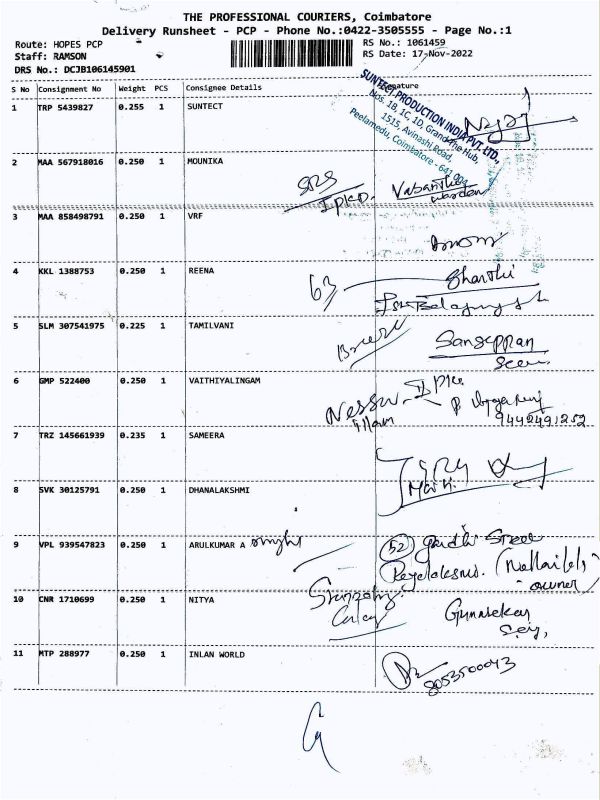 THE PROFESSIONAL COURIERS, Coimbatore
Delivery Runsheet - PCP - Phone No.:0422-3505555 - Page No.:1
Route: HOPES PCP
Staff: RAMSON
DRS No.: DCJB106145901
RS No.: 1061459
RS Date: 17-Nov-2022
S No Consignment No Weight PCS Consignee Details Signature
1 TRP 5439827 0.255 1 SUNTECT
SUNTECT PRODUCTION INDIA PVT. LTD.,
Nos. 1B, 1C, 1D, Grand The Hub,
1515, Avinashi Road,
Peelamedu, Coimbatore - 641 004
2 MAA 567918016 0.250 1 MOUNIKA
SRS
Vasantha
warden
3 MAA 858498791 0.250 1 VRF
4 KKL 1388753 0.250 1 REENA
63 Bharthi
5 SLM 307541975 0.225 1 TAMILVANI
Sangeppan
6 GMP 522400 0.250 1 VAITHIYALINGAM
9442491252
7 TRZ 145661939 0.235 1 SAMEERA
8 SVK 30125791 0.250 1 DHANALAKSHMI
9 VPL 939547823 0.250 1 ARULKUMAR A
52 Gandhi Street
owner)
10 CNR 1710699 0.250 1 NITYA
Gunasekar
11 MTP 288977 0.250 1 INLAN WORLD
8053500043